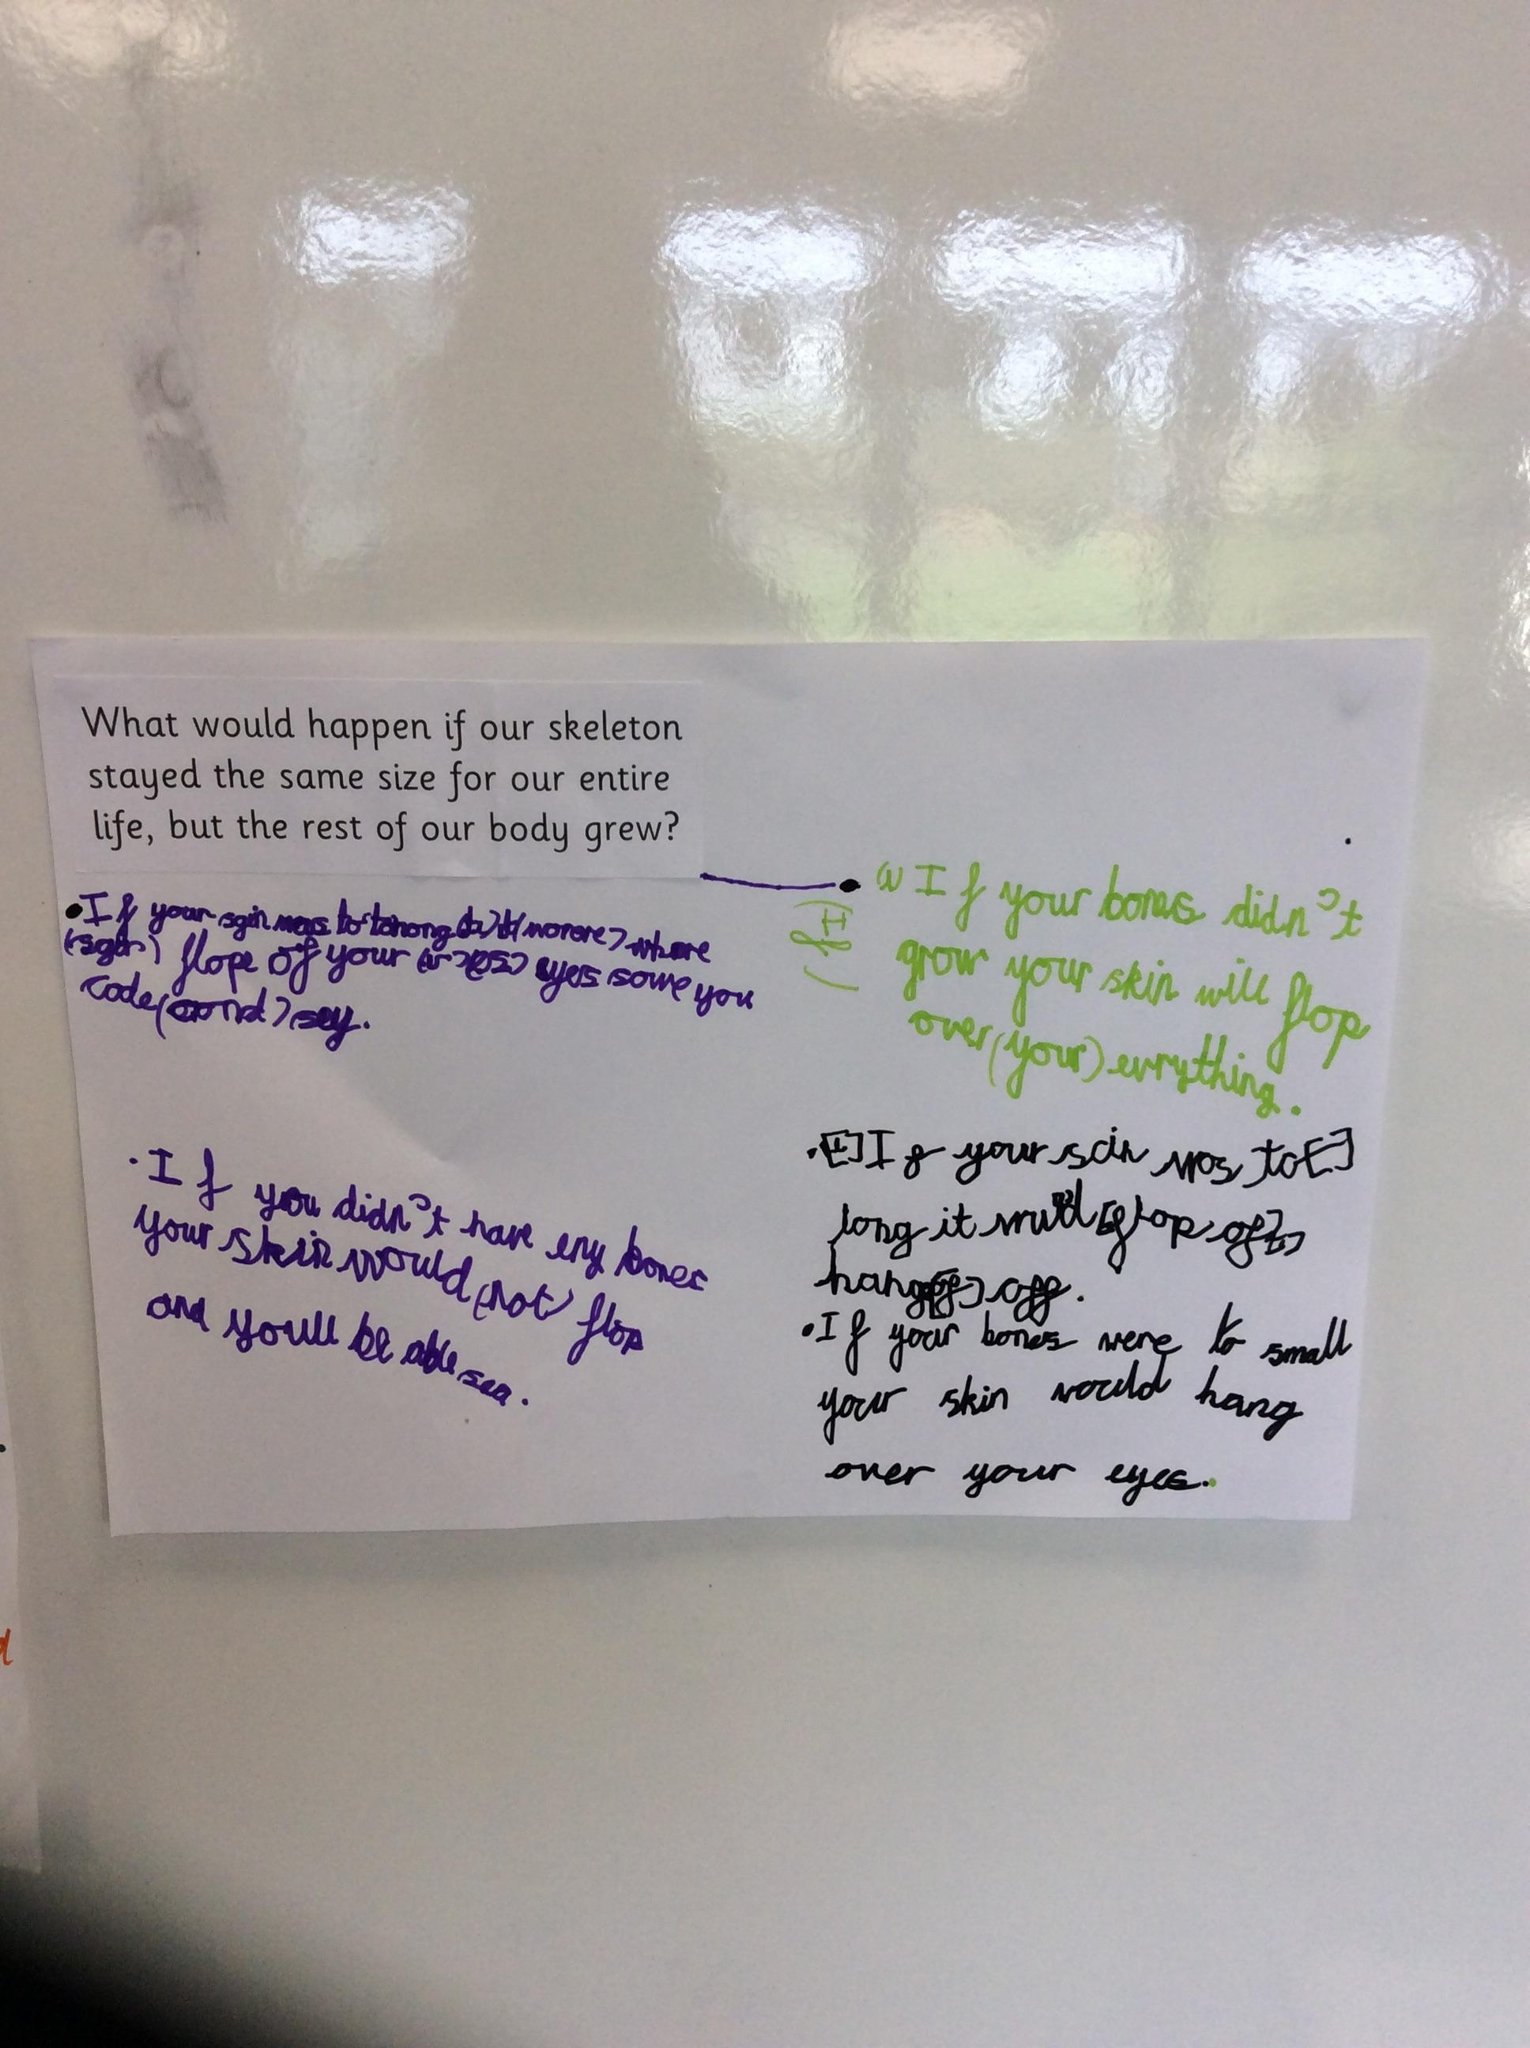 What would happen if our skeleton
stayed the same size for our entire
life, but the rest of our body grew?
If your sgin to where
flope of your eyes some you
code say.
If you didn't have eny bones
your skin would (not) flop
and youll be able sea.
(If)
If your bones didn't
grow your skin will flop
over (your) evrything.
If your scin wos to
long it flop of
hang off.
If your bones were to small
your skin would hang
over your eyes.